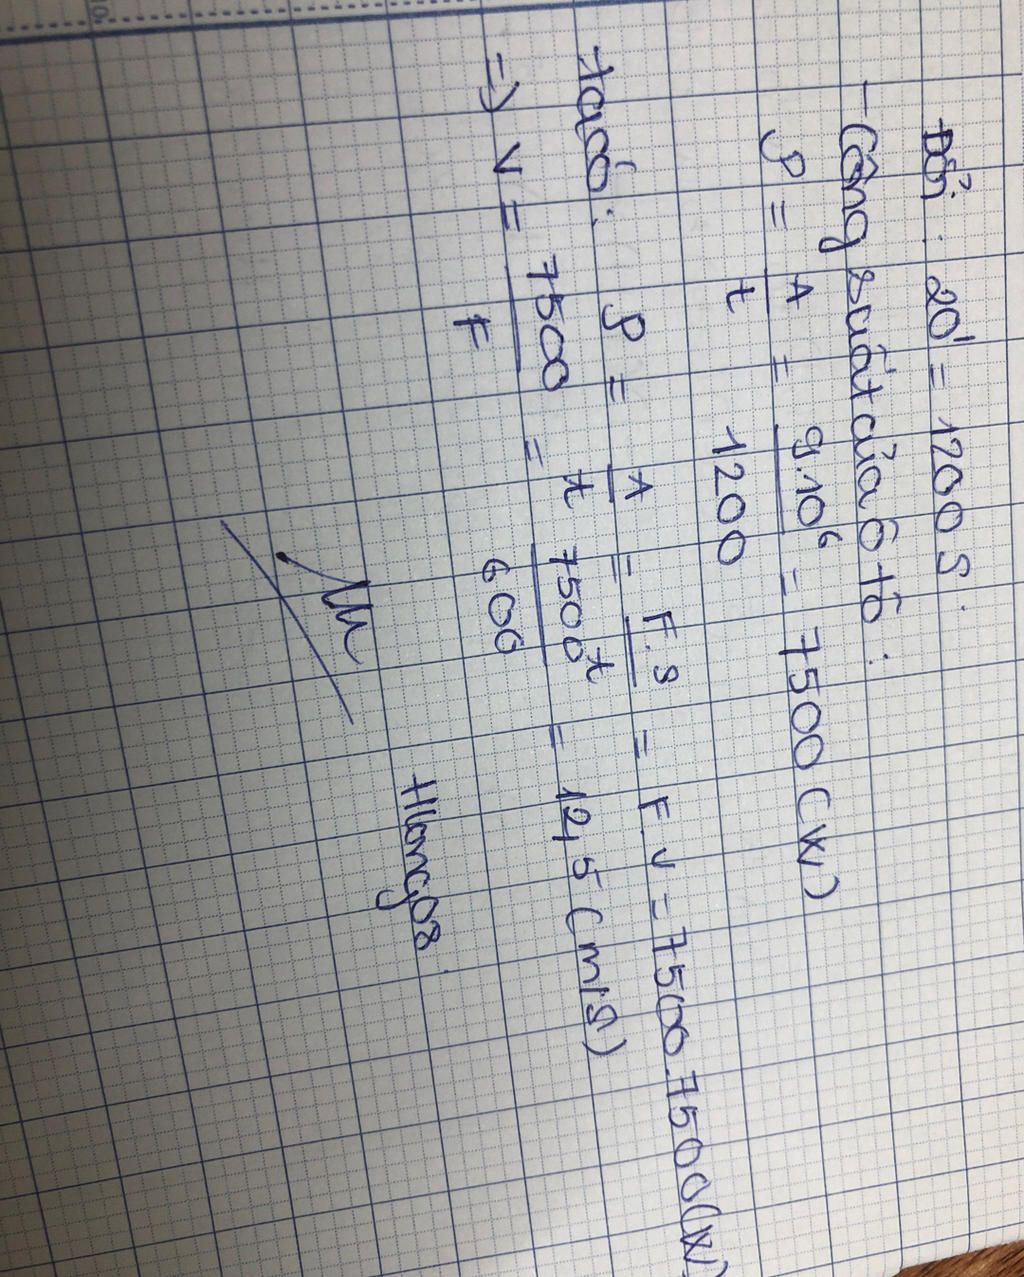 Đổi: 20' = 1200 s.
- Công suất của ô tô:
P = A/t = 9.10⁶/1200 = 7500 (W)
ta có: P = A/t = F.s/t = F.v = 7500.7500(W)
=> v = 7500/F = 7500/600 = 12,5 (m/s)